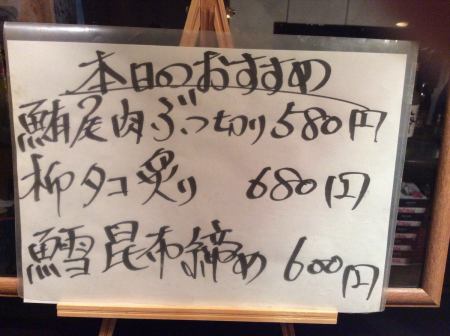 本日のおすすめ
鮪尾肉ぶつ切り580円
柳タコ炙り 680円
鱈昆布締め 600円